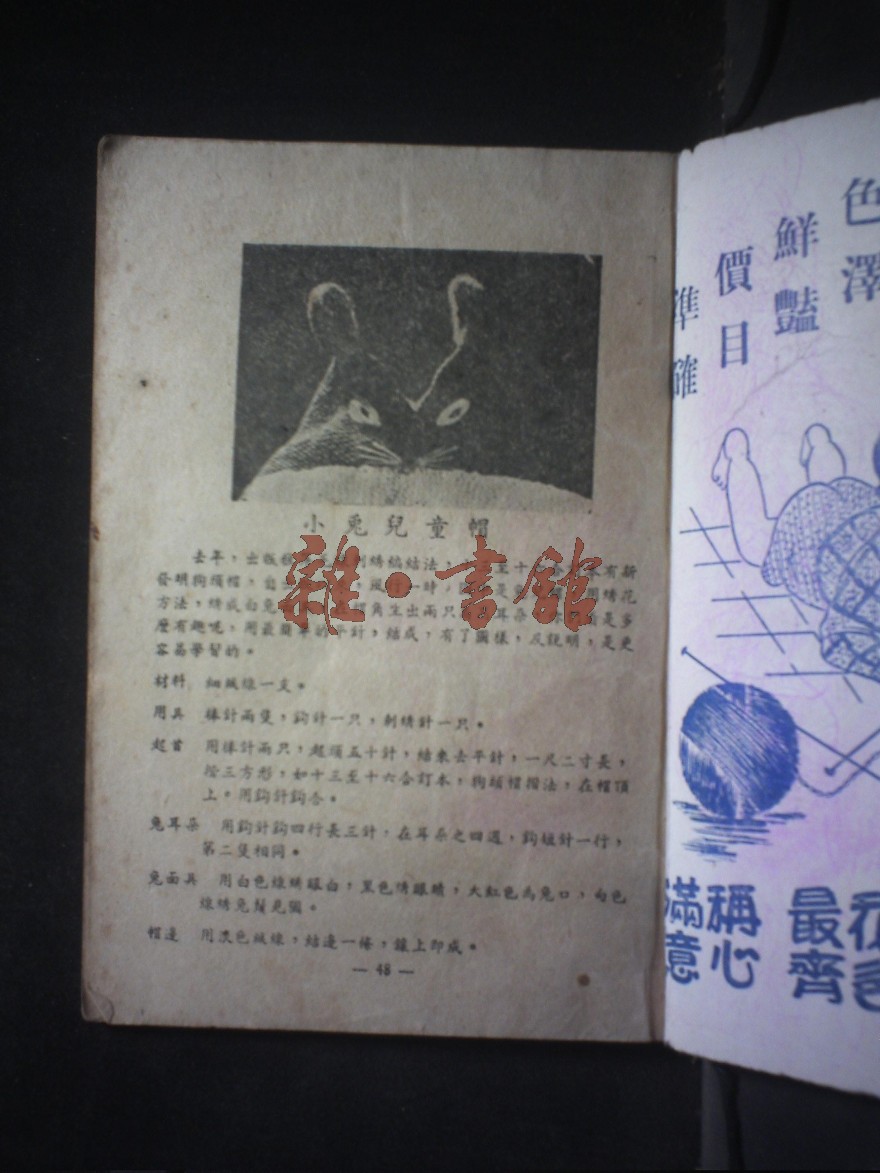 小兎兒童帽
去年，出版 刺綉編結法， 至十 有新
發明狗頭帽， 風 一時， 是 用綉花
方法，綉成白兔 帽角生出兩只 耳朵， 是多
麽有趣呢，用最簡單的平針，結成，有了圖樣，及說明，是更
容易學習的。
材料 細絨線一支。
用具 棒針兩隻，鈎針一只，刺綉針一只。
起首 用棒針兩只，起頭五十針，結來去平針，一尺二寸長，
摺三方形，如十三至十六合訂本，狗頭帽摺法，在帽頂
上。用鈎針鈎合。
兔耳朵 用鈎針鈎四行長三針，在耳朵之四週，鈎短針一行，
第二隻相同。
兔面具 用白色線綉眼白，黑色綉眼睛，大紅色為兔口，白色
線綉兔鬚見圖。
帽邊 用淡色絨線，結邊一條，鑲上即成。
— 48 —
雜·書館
色澤
鮮豔
價目
準確
最齊
稱心
滿意